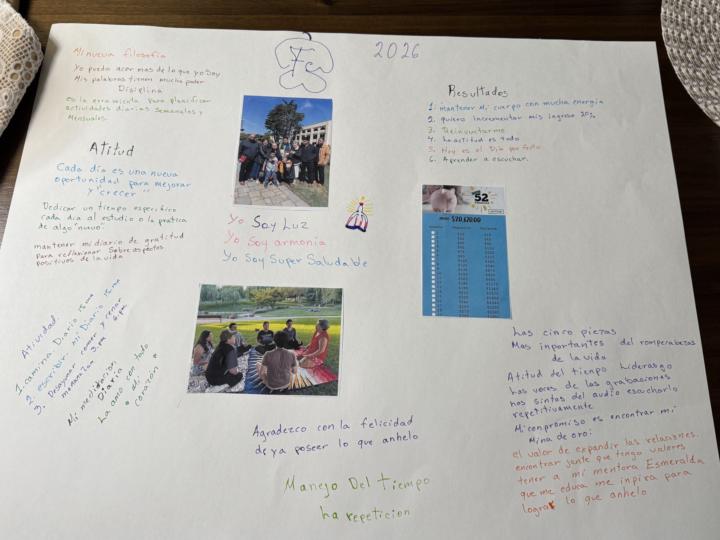 2026
Mi nueva filosofía
Yo puedo acer mas de lo que yo Soy
Mis palabras tienen mucho poder
Disciplina
es la erramienta para planificar
actividades diarias Semanales y
Mensuales.
Atitud
Cada día es una nueva
oportunidad para mejorar
y "crecer"
Dedicar un tiempo especifico
cada dia al estudio o la pratica
de algo nuevo.
mantener mi diario de gratitud
para reflexionar Sobre aspectos
positivos de la vida
Atividad.
1. camina. Diario
2. escribir. mi Diario
3. Desayunar comer y cenar
Mi meditacion
Diaria
La amo con todo
mi
corazón
Yo Soy Luz
Yo Soy armonia
Yo Soy Super Saludable
Agradezco con la felicidad
de ya poseer lo que anhelo
Manejo Del Tiempo
ha repeticion
Resultados
1. mantener Mi cuerpo con mucha energia
2. quiero Incrementar mis Ingreso 20%
3. Reinventarme
4. La actitud es todo
5. Hoy es el Dia perfecto
6. Aprender a escuchar.
52
Las cinco piezas
Mas inportantes del rompecabezas
de la vida
Atitud del tiempo Liderasgo
Las voces de las grabaciones
nos
del audio escucharlo
repetitivamente
Mi conpromiso es encontrar mi
Mina de oro:
el valor de expandir las relaciones.
encontrar gente que tengo valores
tener a mi mentora Esmeralda
que me educa me inpira para
lograr lo que anhelo